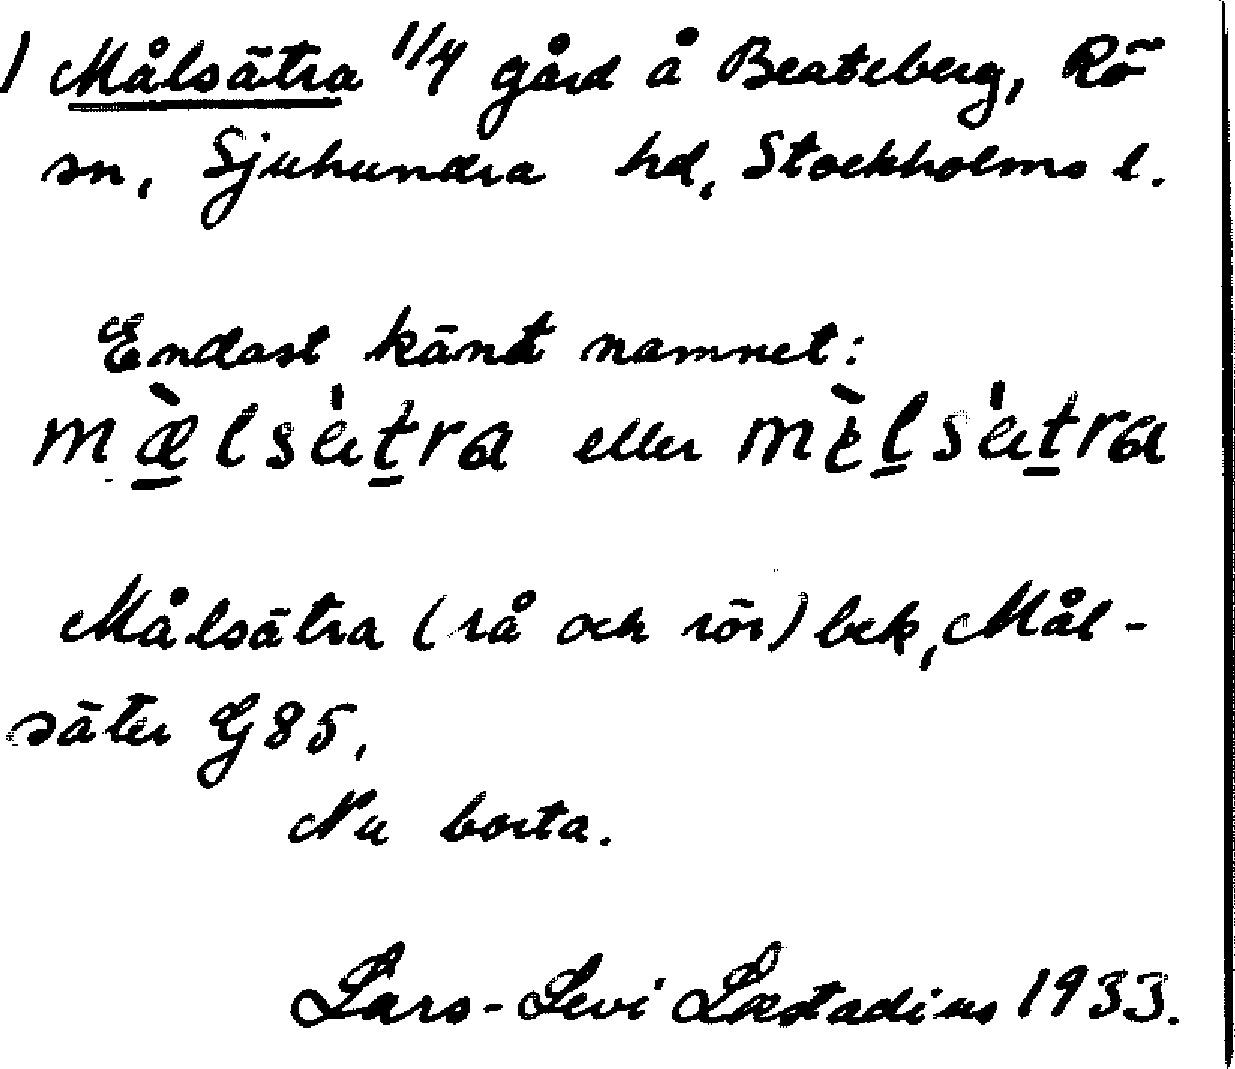 1 Målsätra 1/4 gård å Beateberg, Rö
sn, Sjuhundra hd, Stockholms l.
Endast känt namnet:
mæ̀lsätra eller mɛ̀lsätra
Målsätra (rå och rör) bek, Mål-
säter G85.
Nu borta.
Lars-Levi Læstadius 1933.